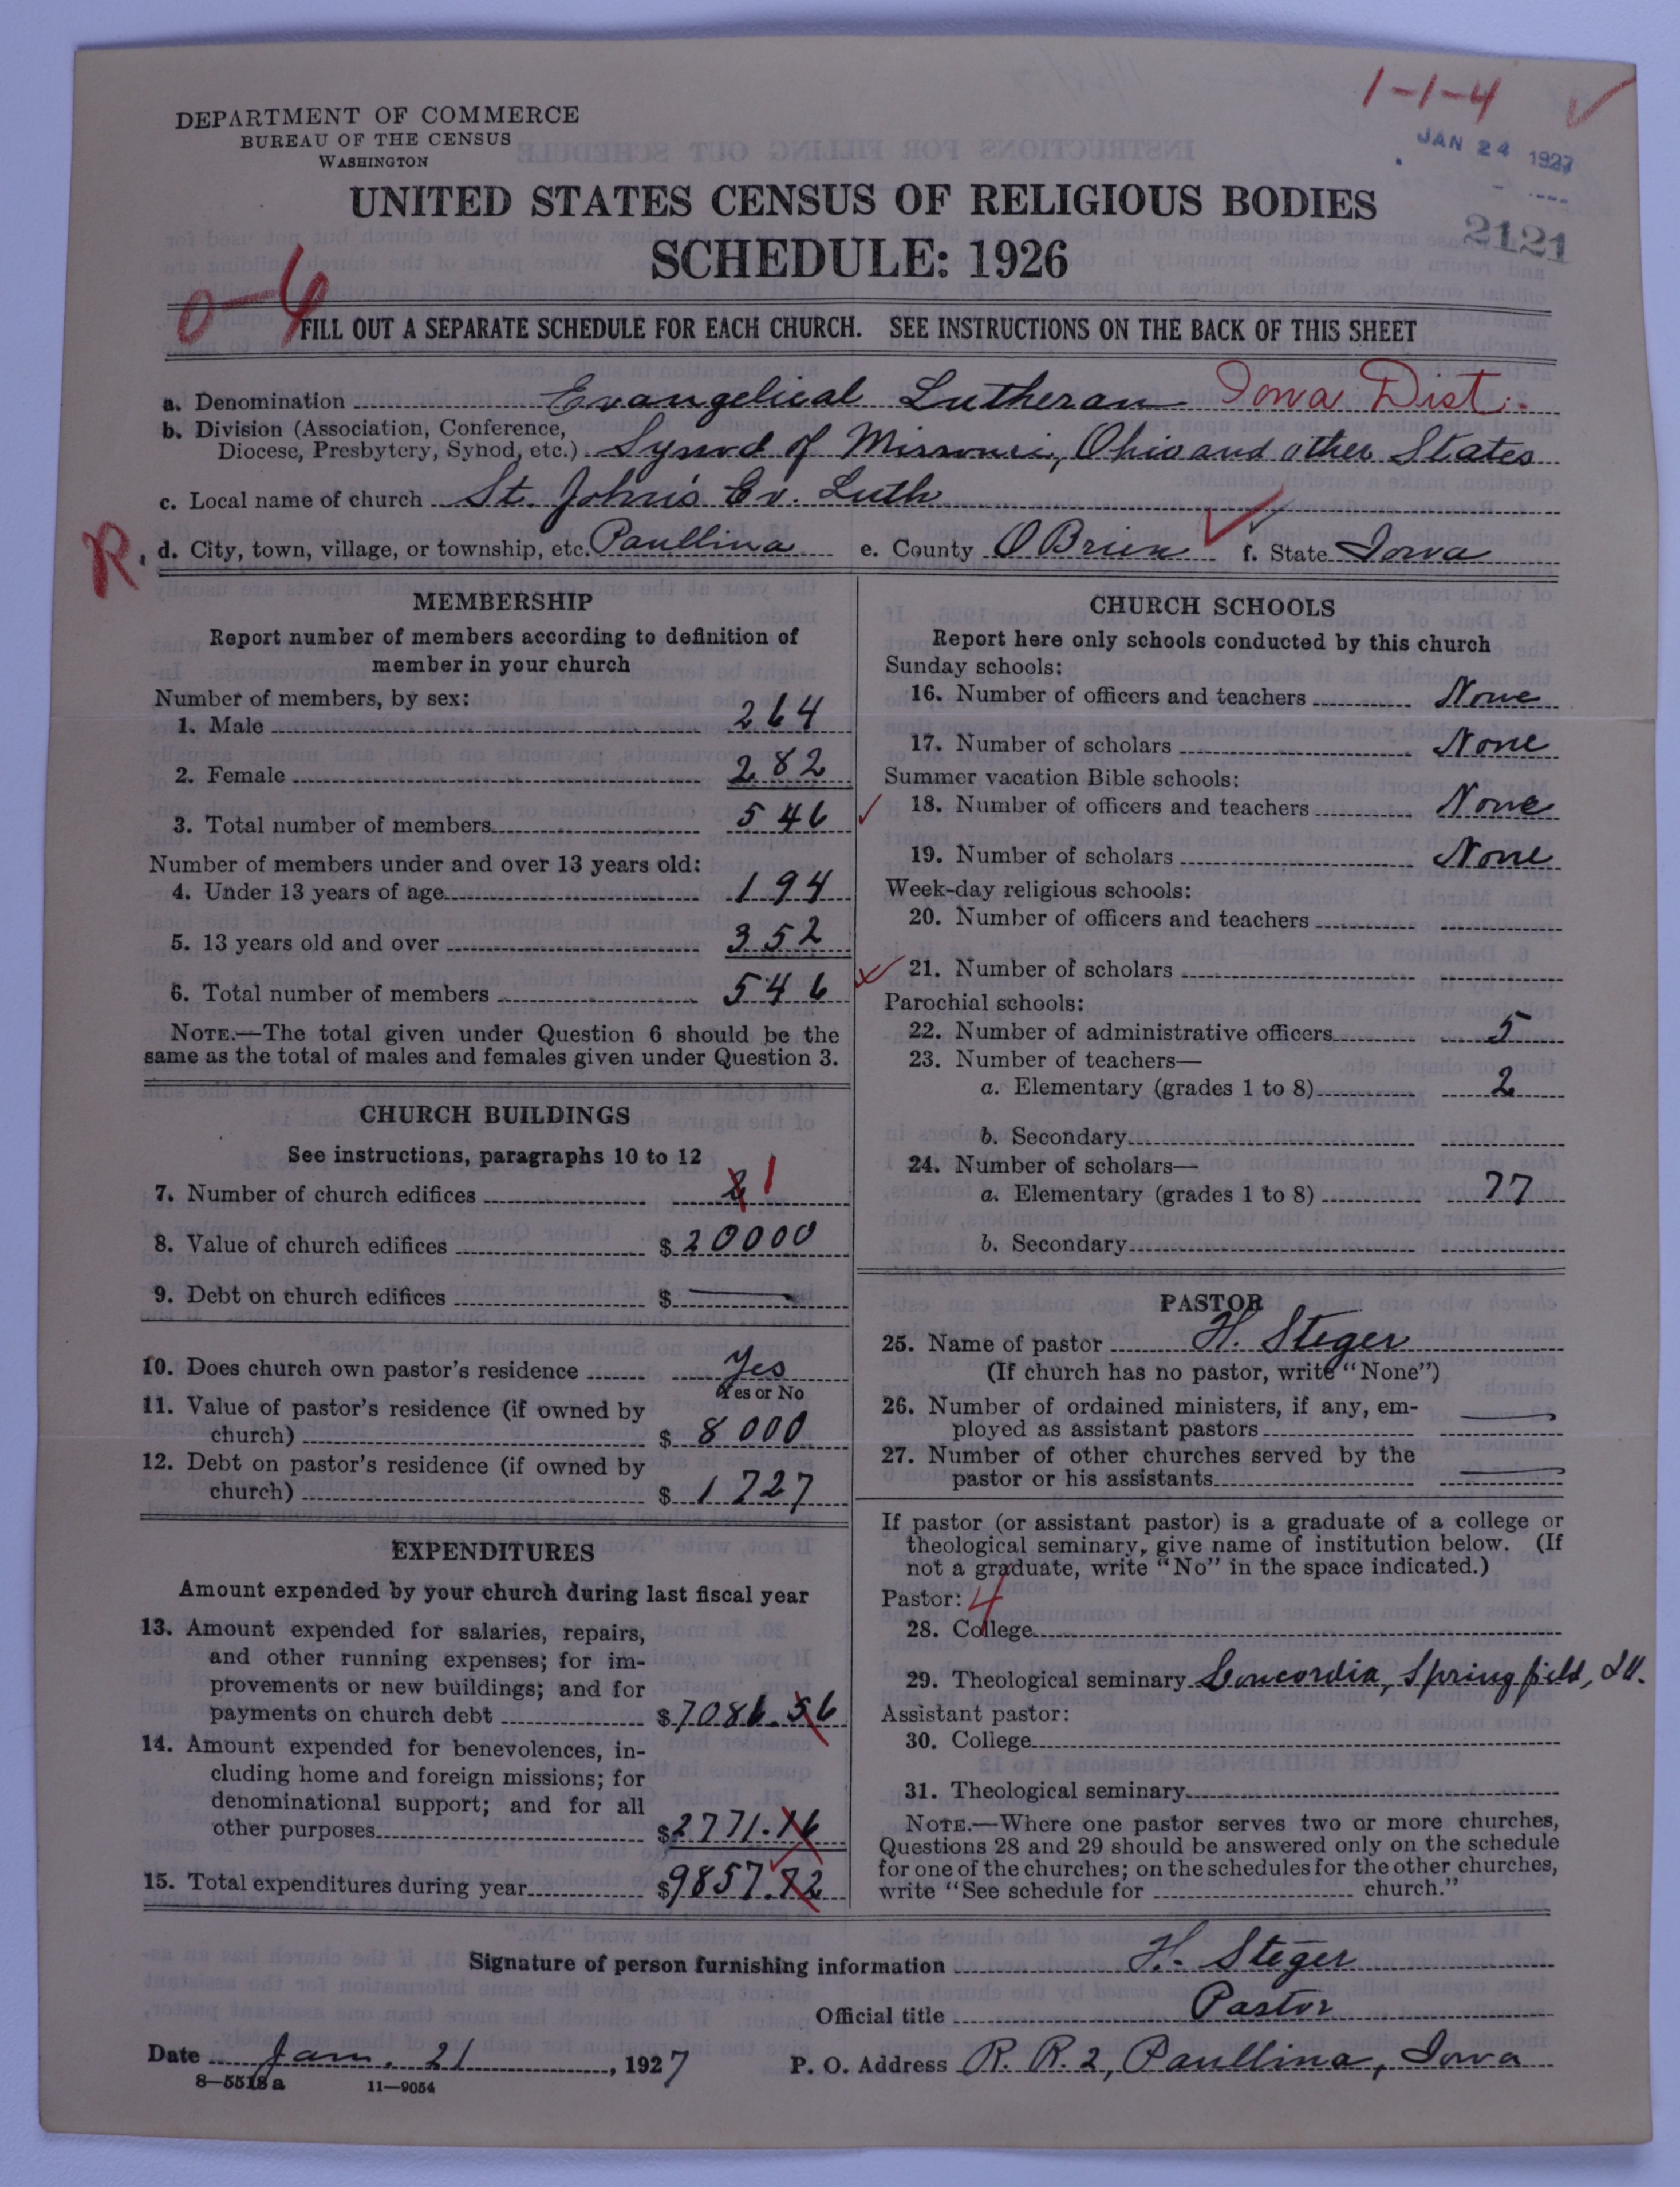 1-1-4
DEPARTMENT OF COMMERCE
BUREAU OF THE CENSUS
WASHINGTON
JAN 24 1927
UNITED STATES CENSUS OF RELIGIOUS BODIES
2121
SCHEDULE: 1926
0-4
FILL OUT A SEPARATE SCHEDULE FOR EACH CHURCH. SEE INSTRUCTIONS ON THE BACK OF THIS SHEET
a. Denomination Evangelical Lutheran Iowa Dist.
b. Division (Association, Conference,
Diocese, Presbytery, Synod, etc.) Synod of Missouri, Ohio and other States
c. Local name of church St. John's Ev. Luth
R. d. City, town, village, or township, etc. Paullina e. County O Brien f. State Iowa
MEMBERSHIP
Report number of members according to definition of
member in your church
Number of members, by sex:
1. Male 264
2. Female 282
3. Total number of members 546
Number of members under and over 13 years old:
4. Under 13 years of age 194
5. 13 years old and over 352
6. Total number of members 546
NOTE.—The total given under Question 6 should be the
same as the total of males and females given under Question 3.
CHURCH BUILDINGS
See instructions, paragraphs 10 to 12
7. Number of church edifices 1
8. Value of church edifices $ 20000
9. Debt on church edifices $ —
10. Does church own pastor's residence Yes
Yes or No
11. Value of pastor's residence (if owned by
church) $ 8000
12. Debt on pastor's residence (if owned by
church) $ 1727
EXPENDITURES
Amount expended by your church during last fiscal year
13. Amount expended for salaries, repairs,
and other running expenses; for im-
provements or new buildings; and for
payments on church debt $ 7086.56
14. Amount expended for benevolences, in-
cluding home and foreign missions; for
denominational support; and for all
other purposes $ 2771.16
15. Total expenditures during year $ 9857.72
CHURCH SCHOOLS
Report here only schools conducted by this church
Sunday schools:
16. Number of officers and teachers None
17. Number of scholars None
Summer vacation Bible schools:
18. Number of officers and teachers None
19. Number of scholars None
Week-day religious schools:
20. Number of officers and teachers
21. Number of scholars
Parochial schools:
22. Number of administrative officers 5
23. Number of teachers—
a. Elementary (grades 1 to 8) 2
b. Secondary
24. Number of scholars—
a. Elementary (grades 1 to 8) 77
b. Secondary
PASTOR
25. Name of pastor H. Steger
(If church has no pastor, write "None")
26. Number of ordained ministers, if any, em-
ployed as assistant pastors —
27. Number of other churches served by the
pastor or his assistants —
If pastor (or assistant pastor) is a graduate of a college or
theological seminary, give name of institution below. (If
not a graduate, write "No" in the space indicated.)
Pastor: 4
28. College
29. Theological seminary Concordia, Springfield, Ill.
Assistant pastor:
30. College
31. Theological seminary
NOTE.—Where one pastor serves two or more churches,
Questions 28 and 29 should be answered only on the schedule
for one of the churches; on the schedules for the other churches,
write "See schedule for church."
Signature of person furnishing information H. Steger
Official title Pastor
Date Jan. 21, 1927 P. O. Address R. R. 2, Paullina, Iowa
8—5518a 11—9054